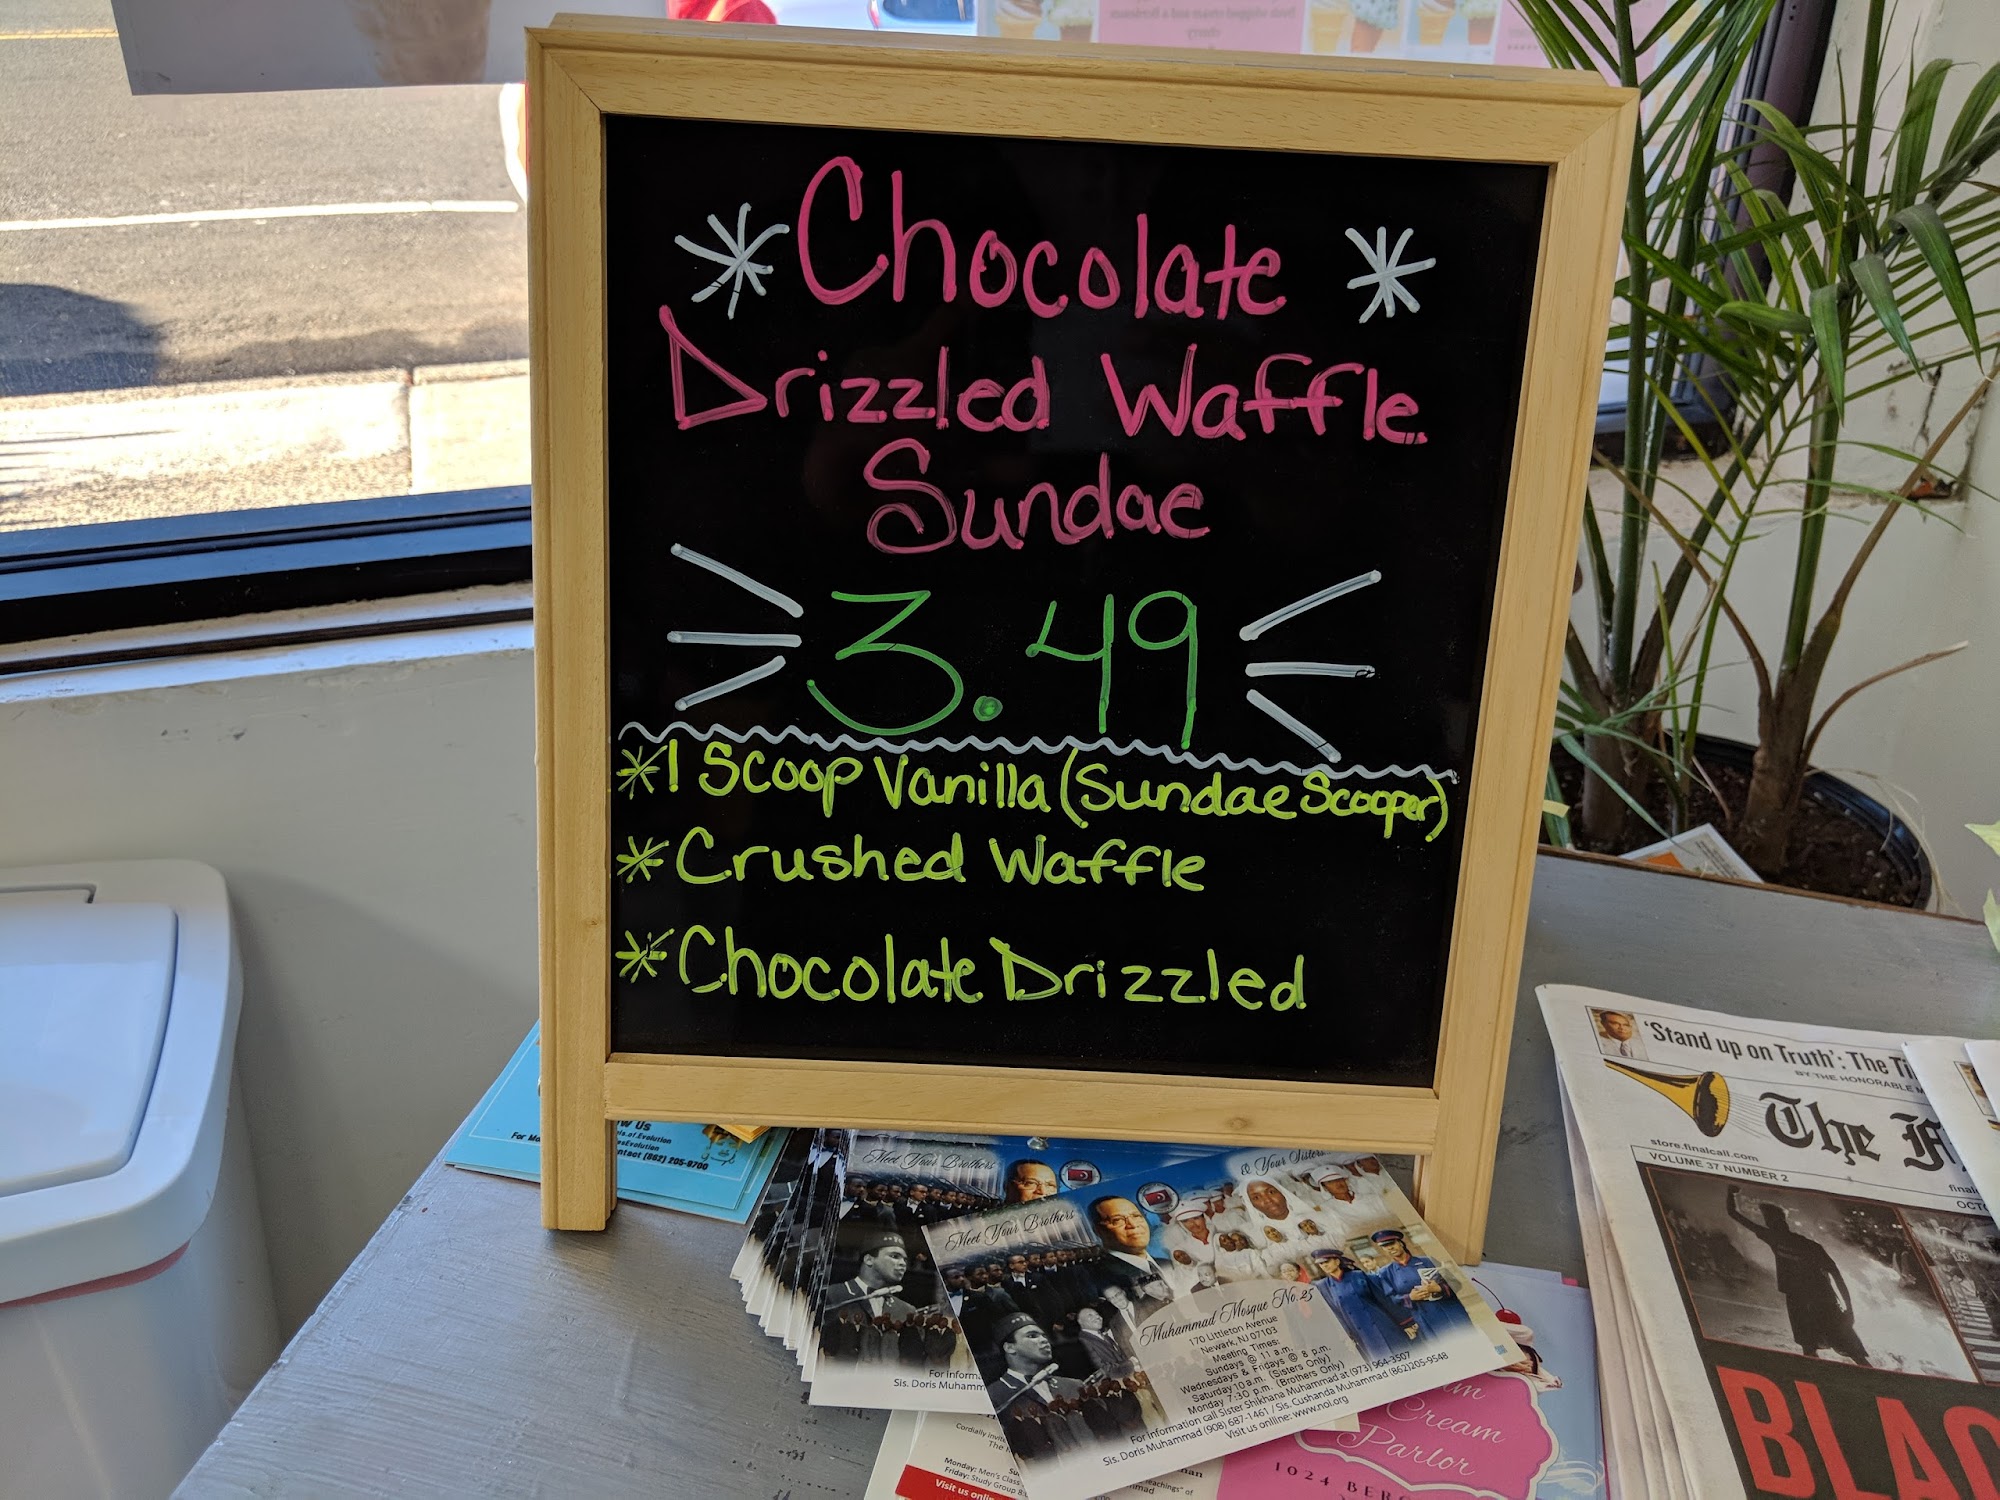 Chocolate
Drizzled Waffle
Sundae
3.49
*1 Scoop Vanilla (Sundae Scooper)
*Crushed Waffle
*Chocolate Drizzled
'Stand up on Truth': The
BY THE HONORABLE
The
store.finalcall.com
VOLUME 37 NUMBER 2
Us
contact (862) 205-9700
Meet Your Brothers
& Your Sisters
Meet Your Brothers
Muhammad Mosque No.25
170 Littleton Avenue
Newark, NJ 07103
Meeting Times:
Sundays @ 11 a.m.
Wednesdays & Fridays @ 8 p.m.
Saturday 10 a.m. (Sisters Only)
Monday 7:30 p.m. (Brothers Only)
For Information call Sister Shikhana Muhammad at (973) 964-3507
Sis. Doris Muhammad (908) 687-1461 / Sis. Cushanda Muhammad (862)205-9548
Visit us online: www.noi.org
Sis. Doris
Cream
Parlor
1024
Monday: Men's Class
Friday: Study Group
Visit us
BLAC